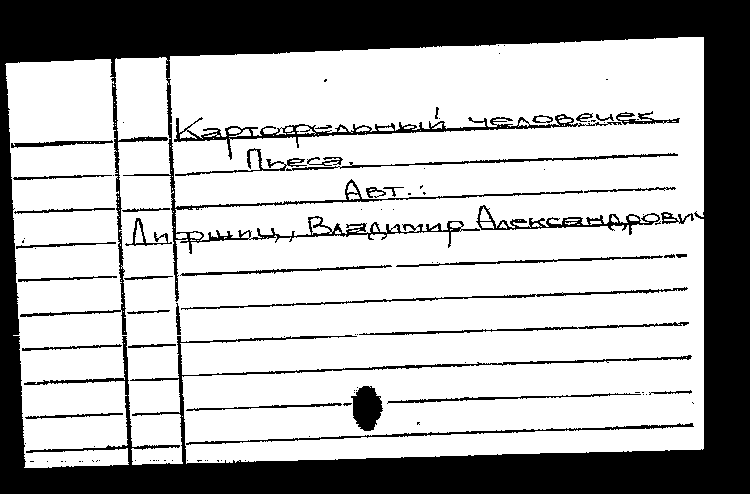 Картофельный человечек
Пьеса.
Авт.:
Лифшиц, Владимир Александрович